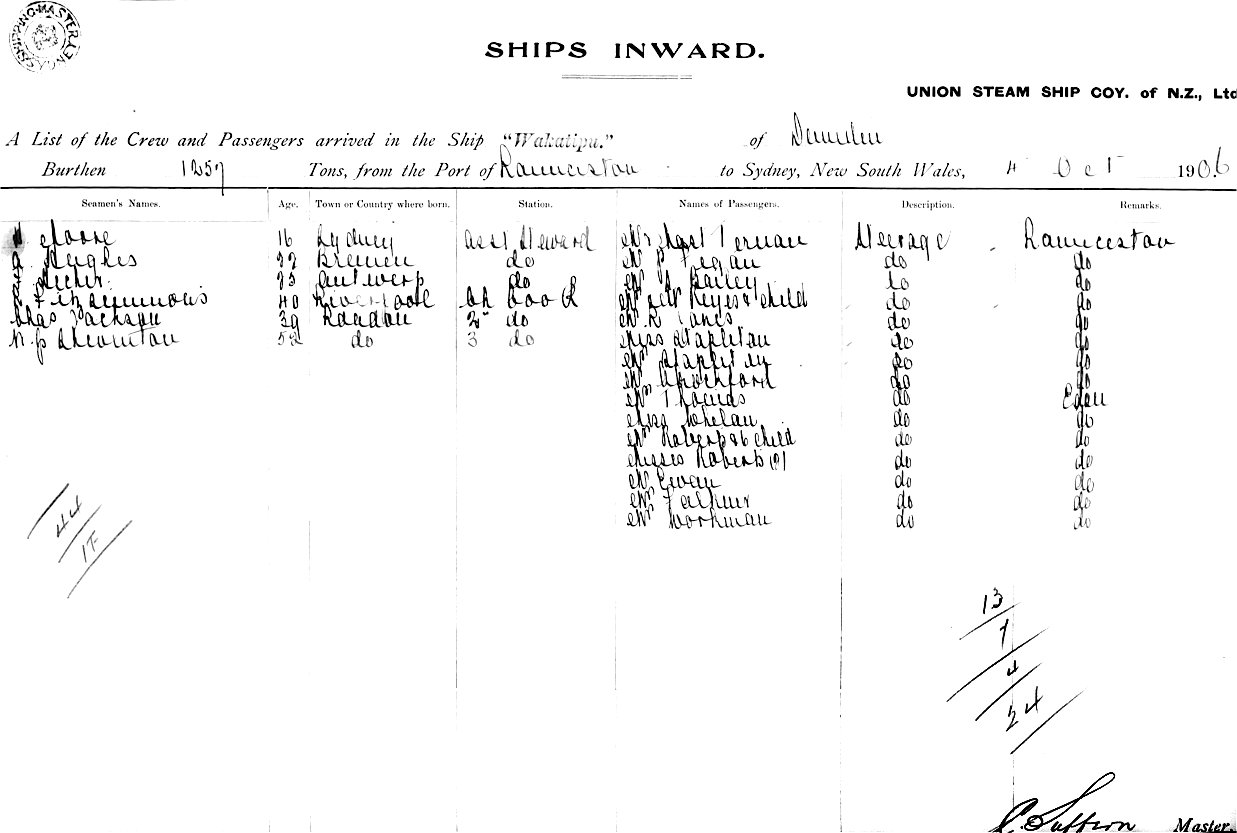 SHIPPING MASTER
SHIPS INWARD.
UNION STEAM SHIP COY. of N.Z., Ltd
A List of the Crew and Passengers arrived in the Ship "Wakatipu." of Dunedin
Burthen 1257 Tons, from the Port of Launceston to Sydney, New South Wales, 4 Oct 1906
Seamen's Names. Age. Town or Country where born. Station. Names of Passengers. Description. Remarks.
Moore 16 Sydney asst Steward Mr & Mrs Ternan Steerage Launceston
Hughes 22 Bremen do Mr P Fegan do do
23 Antwerp do Mr Bailey do do
Fitzsimmons 40 Liverpool Ch Cook Mr & Mrs Keyes & child do do
Chas Jackson 39 London 2nd do Mr R Jones do do
Thornton 52 do 3 do Miss Stapleton do do
Mr Stapleton do do
Mr Crochford do do
Mr Thomas do Eden
Miss Whelan do do
Mr Roberts & 6 child do do
Misses Roberts (2) do do
Mr Ewan do do
Mr do do
Mr Workman do do
44
1F
13
7
4
24
Master.